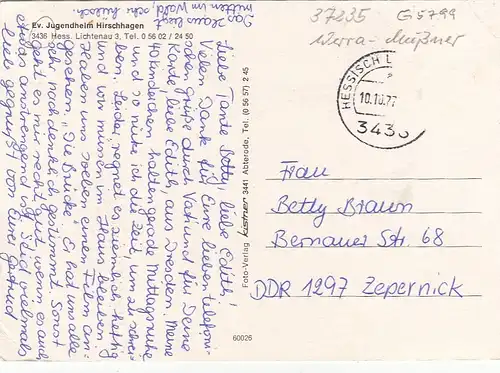 Ev. Jugendheim Hirschhagen
3436 Hess. Lichtenau 3, Tel. 0 56 02 / 24 50
Das Haus liegt
mitten im Wald, sehr hübsch
37235 G5799
Werra-Meißner
HESSISCH L
10.10.77
3436
Liebe Tante Betty, liebe Edith!
Vielen Dank für Eure lieben telefoni-
schen Grüße durch Vati und für Deine
Karte, liebe Edith, aus Dresden. Meine
40 Kinderchen halten gerade Mittagsruhe
und so nutze ich die Zeit, um zu schrei-
ben. Leider regnet es ziemlich heftig
und wir müssen im Haus bleiben.
Haben uns soeben einen Film an-
gesehen, "Die Brücke". Er hat uns alle
sehr nachdenklich gestimmt. Sonst
geht es mir recht gut, wenn es auch
etwas anstrengend ist. Seid vielmals
lieb gegrüßt von Eurer Gertrud
Foto-Verlag Kästner 3441 Abterode, Tel. (0 56 57) 2 45
60026
Frau
Betty Braun
Bernauer Str. 68
DDR 1297 Zepernick